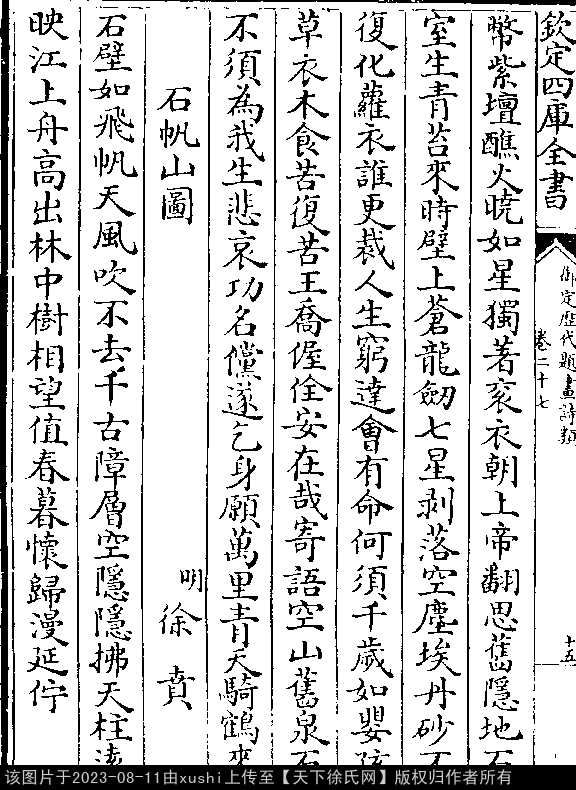 欽定四庫全書
御定歷代題畫詩類
卷二十七
十五
幣紫壇醮火曉如星獨著衮衣朝上帝翻思舊隱地石
室生青苔來時壁上蒼龍劒七星剥落空塵埃丹砂不
復化蘿衣誰更裁人生窮達會有命何須千歲如嬰孩
草衣木食苦復苦王喬偓佺安在哉寄語空山舊泉石
不須為我生悲哀功名儻遂乞身願萬里青天騎鶴來
石帆山圖
明徐賁
石壁如飛帆天風吹不去千古障層空隱隱拂天柱
映江上舟髙出林中樹相望值春暮懷歸漫延佇
该图片于2023-08-11由xushi上传至【天下徐氏网】版权归作者所有